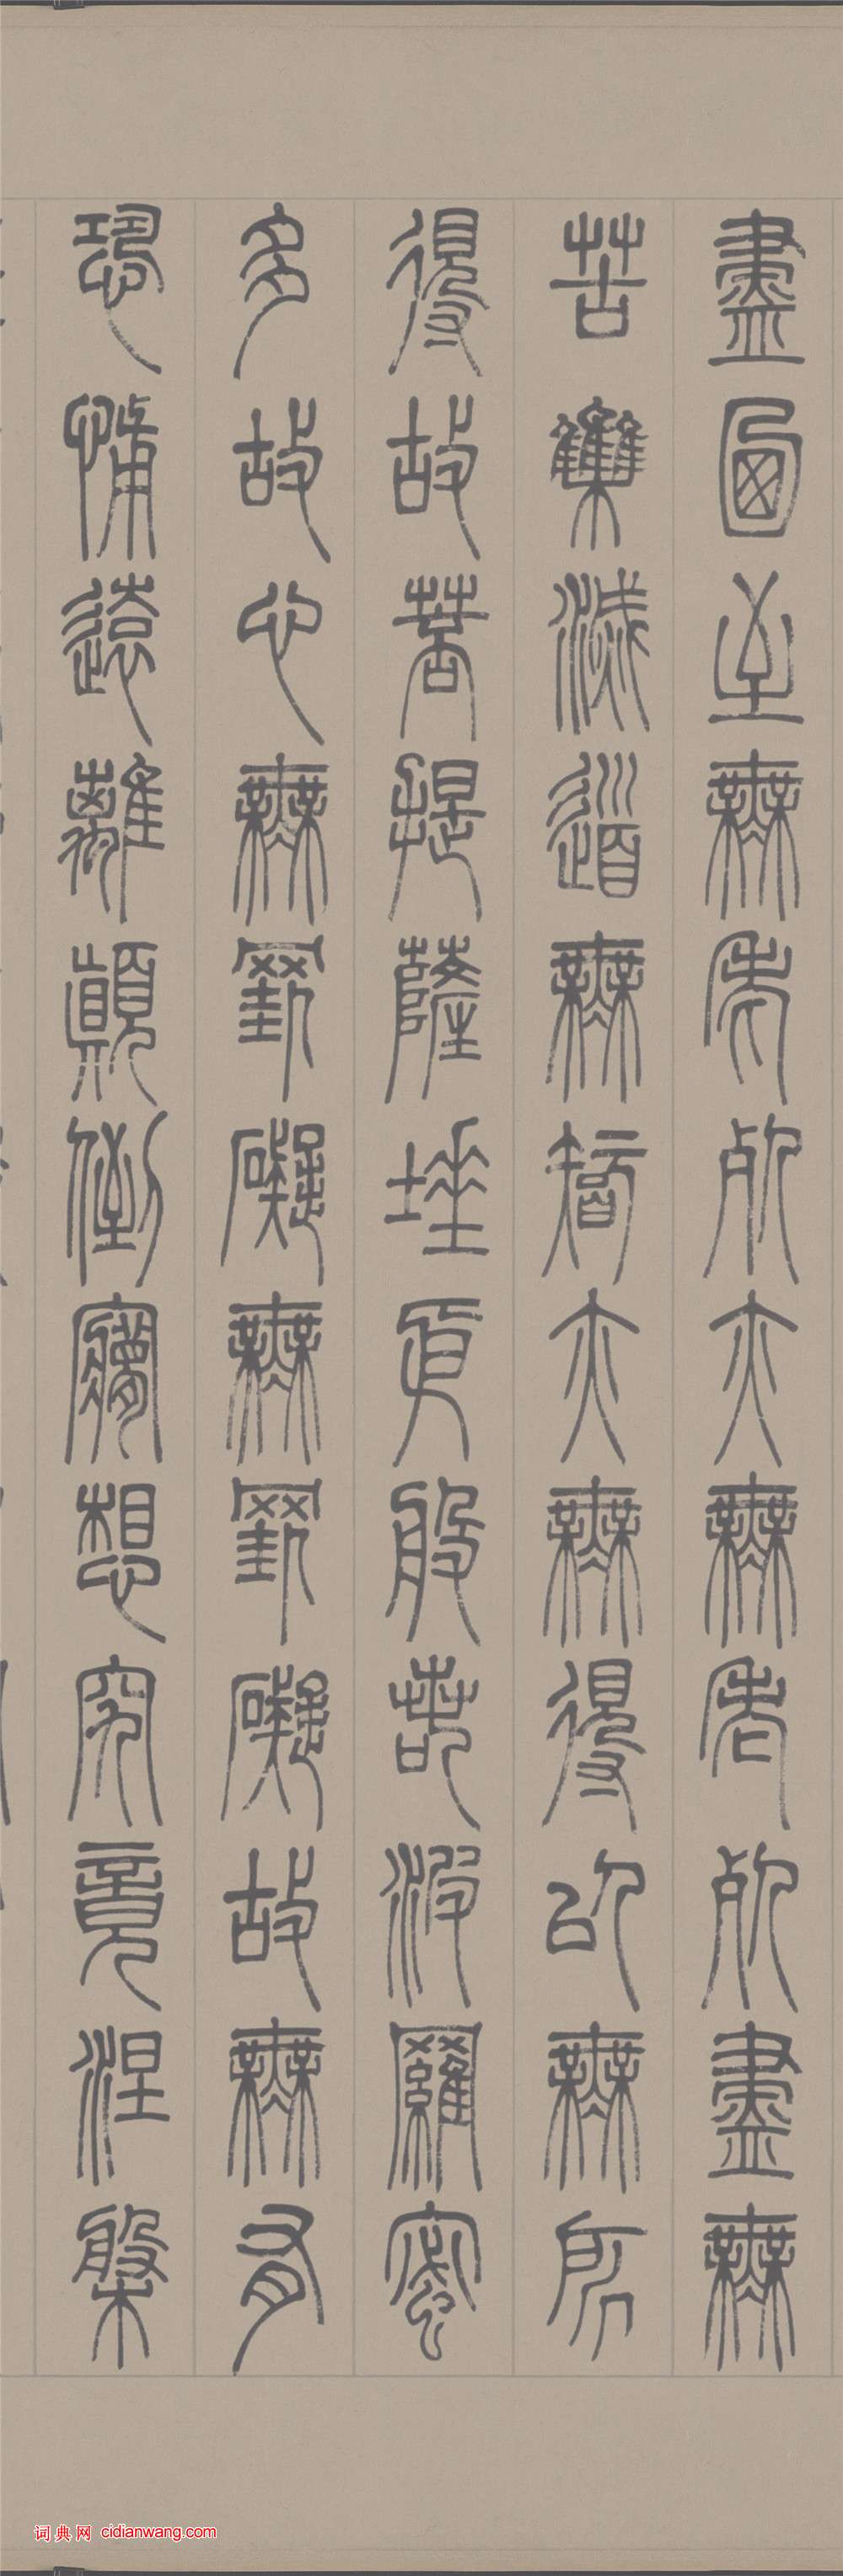 盡乃至無老死亦無老死盡無
苦集滅道無智亦無得以無所
得故菩提薩埵依般若波羅蜜
多故心無罣礙無罣礙故無有
恐怖遠離顛倒夢想究竟涅槃
词典网 cidianwang.com